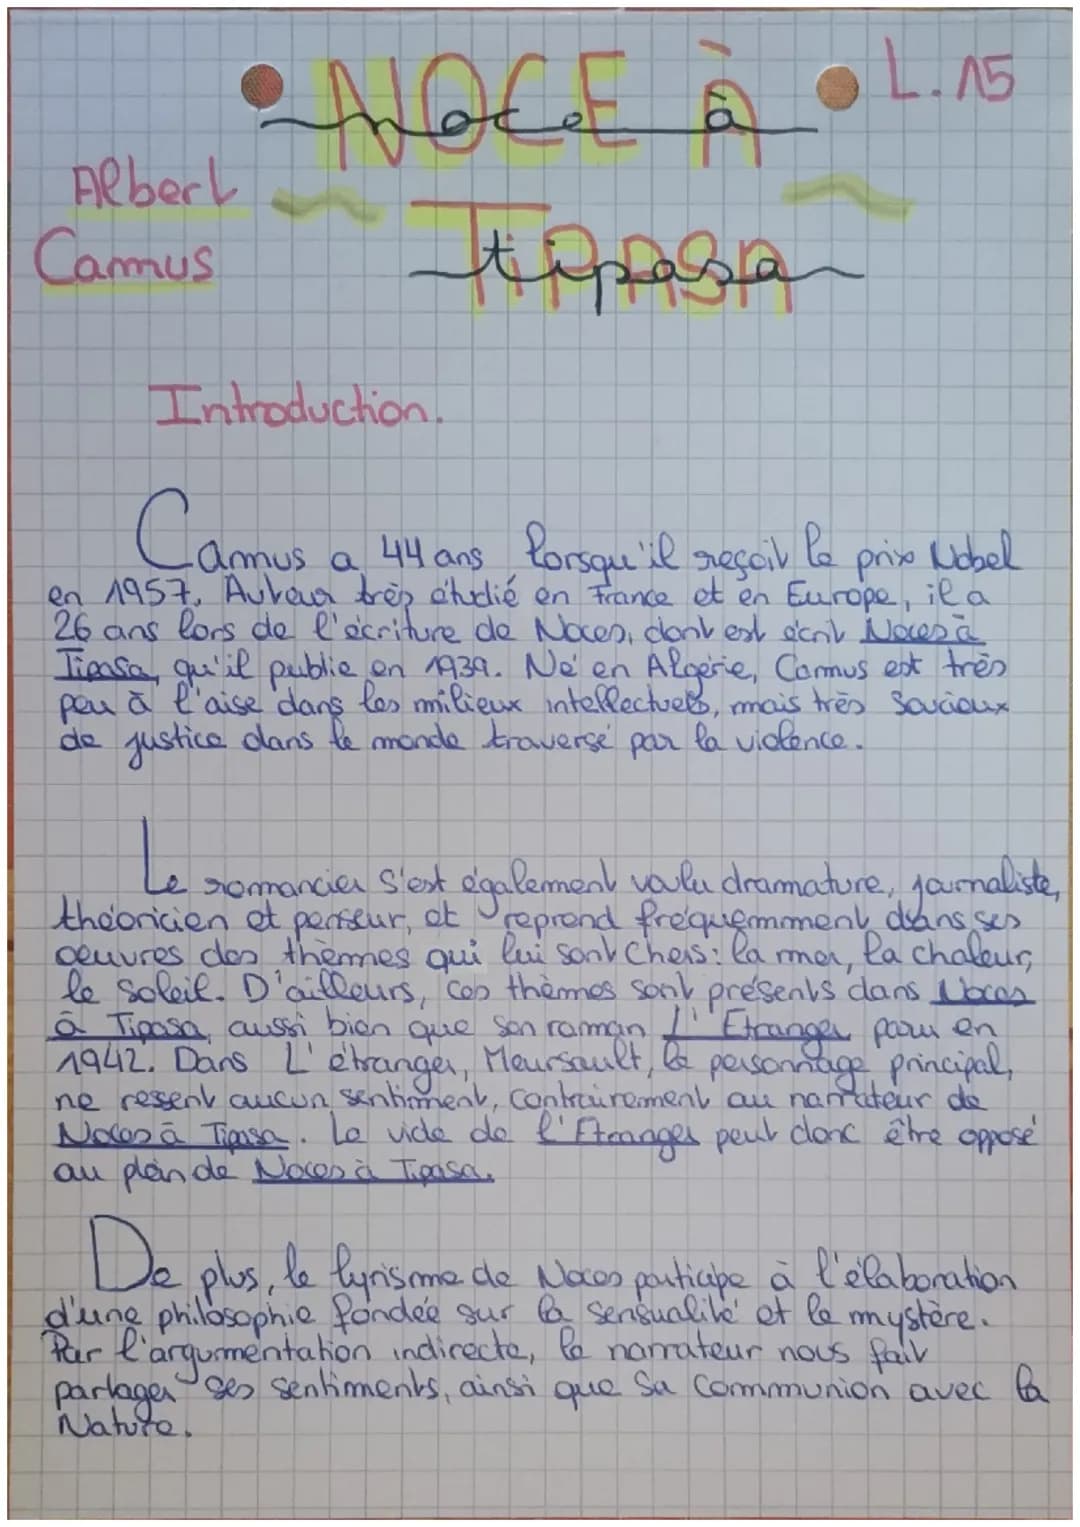 NOCE À
Noce à
L.15
Albert
Camus
TIPASA
tipasa
Introduction.
Camus a 44 ans lorsqu'il reçoit le prix Nobel
en 1957. Auteur très étudié en France et en Europe, il a
26 ans lors de l'écriture de Noces, dont est écrit Noces à
Tipasa, qu'il publie en 1939. Né en Algérie, Camus est très
peu à l'aise dans les milieux intellectuels, mais très soucieux
de justice dans le monde traversé par la violence.
Le romancier s'est également voulu dramature, journaliste,
théoricien et penseur, et reprend fréquemmment dans ses
oeuvres des thèmes qui lui sont chers: la mer, la chaleur,
le soleil. D'ailleurs, ces thèmes sont présents dans Noces
à Tipasa, aussi bien que son roman L'Etranger paru en
1942. Dans L'étranger, Meursault, le personnage principal,
ne ressent aucun sentiment, contrairement au narrateur de
Noces à Tipasa. Le vide de l'Etranger peut donc être opposé
au plein de Noces à Tipasa.
De plus, le lyrisme de Noces participe à l'élaboration
d'une philosophie fondée sur la sensualité et le mystère.
Par l'argumentation indirecte, le narrateur nous fait
partager ses sentiments, ainsi que sa communion avec la
Nature.